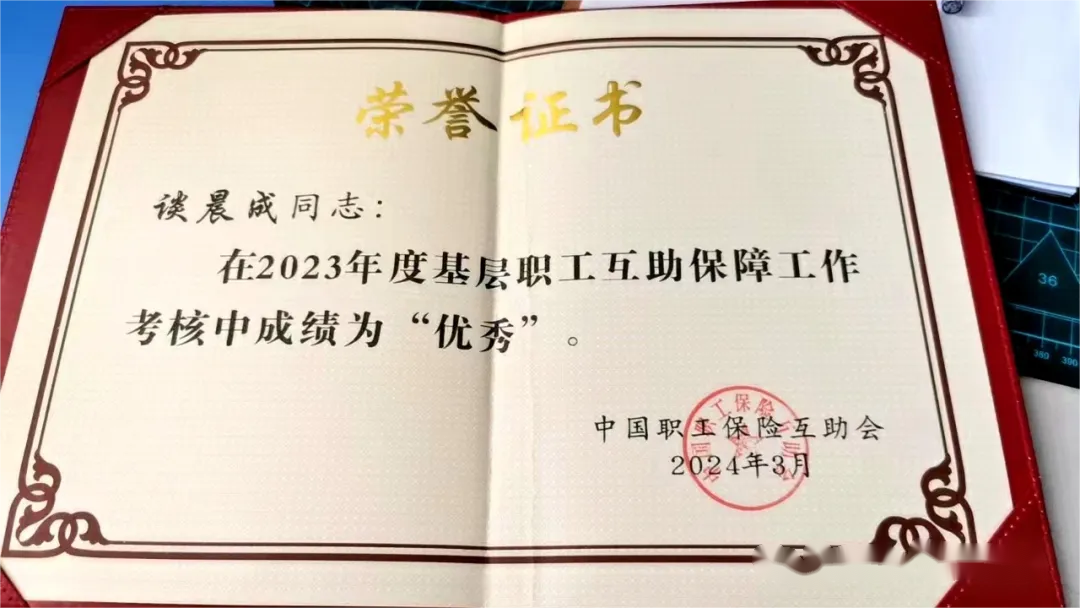 荣誉证书
谈晨成同志：
在2023年度基层职工互助保障工作
考核中成绩为“优秀”。
中国职工保险互助会
2024年3月
中国职工保险互助会
36
380 390